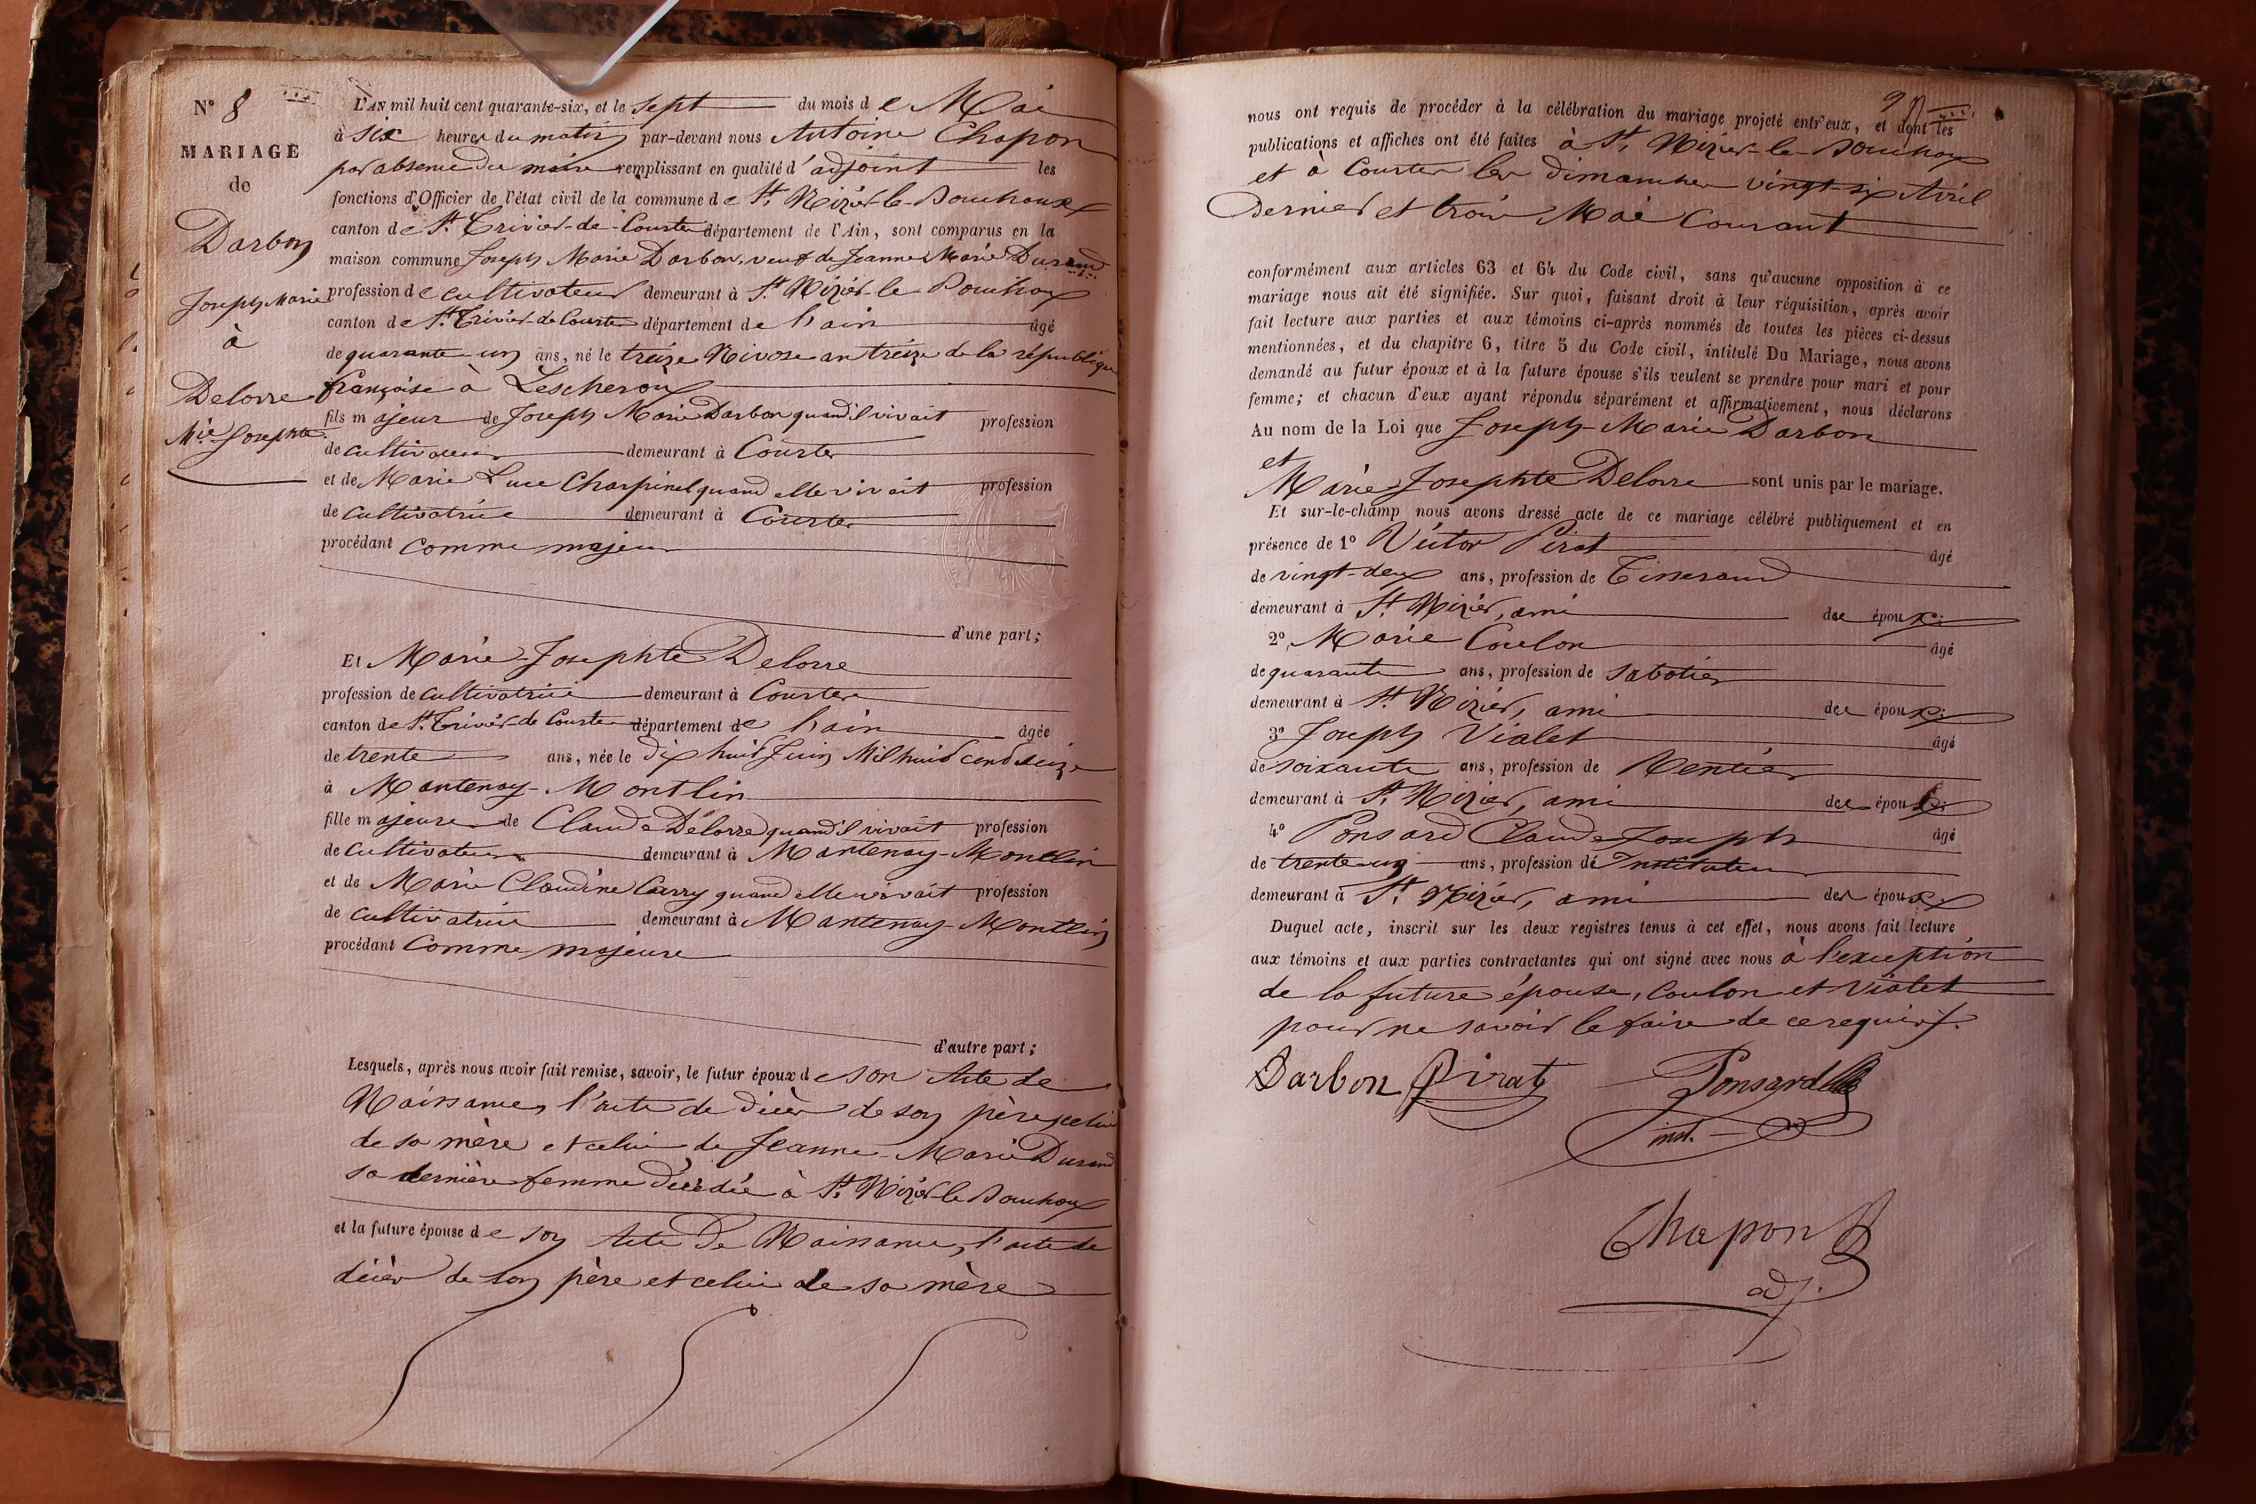 N° 8
MARIAGE
de
Darbon
Joseph Marie
à
Delorre
Mie Josephte
L'AN mil huit cent quarante-six, et le sept du mois de Mai
à six heures du matin par-devant nous Antoine Chapon
par absence du maire remplissant en qualité d'adjoint les
fonctions d'Officier de l'état civil de la commune de St. Nizier-le-Bouchoux
canton de St. Trivier-de-Courtes département de l'Ain, sont comparus en la
maison commune Joseph Marie Darbon, veuf de Jeanne Marie Durand
profession de cultivateur demeurant à St. Nizier-le-Bouchoux
canton de St. Trivier-de-Courtes département de l'ain âgé
de quarante-un ans, né le treize Nivose an treize de la république
française à Lescheroux
fils majeur de Joseph Marie Darbon quand il vivait profession
de cultivateur demeurant à Courtes
et de Marie Luce Charpinel quand elle vivait profession
de cultivatrice demeurant à Courtes
procédant comme majeur
d'une part;
Et Marie-Josephte Delorre
profession de cultivatrice demeurant à Courtes
canton de St. Trivier-de-Courtes département de l'ain âgée
de trente ans, née le dix huit Juin Mil huit cent seize
à Mantenay-Montlin
fille majeure de Claude Delorre quand il vivait profession
de cultivateur demeurant à Mantenay-Montlin
et de Marie Claudine Carry quand elle vivait profession
de cultivatrice demeurant à Mantenay-Montlin
procédant comme majeure
d'autre part;
Lesquels, après nous avoir fait remise, savoir, le futur époux de son Acte de
Naissance, l'acte de décès de son père, celui
de sa mère et celui de Jeanne-Marie Durand
sa dernière femme décédée à St. Nizier-le-Bouchoux
et la future épouse de son Acte de Naissance, l'acte de
décès de son père et celui de sa mère
nous ont requis de procéder à la célébration du mariage projeté entr'eux, et dont les
publications et affiches ont été faites à St. Nizier-le-Bouchoux
et à Courtes les dimanches vingt-six Avril
dernier et trois Mai courant
conformément aux articles 63 et 64 du Code civil, sans qu'aucune opposition à ce
mariage nous ait été signifiée. Sur quoi, faisant droit à leur réquisition, après avoir
fait lecture aux parties et aux témoins ci-après nommés de toutes les pièces ci-dessus
mentionnées, et du chapitre 6, titre 5 du Code civil, intitulé Du Mariage, nous avons
demandé au futur époux et à la future épouse s'ils veulent se prendre pour mari et pour
femme; et chacun d'eux ayant répondu séparément et affirmativement, nous déclarons
Au nom de la Loi que Joseph-Marie Darbon
et
Marie Josephte Delorre sont unis par le mariage.
Et sur-le-champ nous avons dressé acte de ce mariage célébré publiquement et en
présence de 1° Victor Pirat âgé
de vingt-deux ans, profession de Tisserand
demeurant à St. Nizier, ami des époux.
2° Marie Coulon âgé
de quarante ans, profession de sabotier
demeurant à St. Nizier, ami des époux.
3° Joseph Vialet âgé
de soixante ans, profession de Rentier
demeurant à St. Nizier, ami des époux.
4° Ponsard Claude Joseph âgé
de trente-un ans, profession de Instituteur
demeurant à St. Nizier, ami des époux.
Duquel acte, inscrit sur les deux registres tenus à cet effet, nous avons fait lecture
aux témoins et aux parties contractantes qui ont signé avec nous à l'exception
de la future épouse, Coulon et Vialet
pour ne savoir le faire de ce requis.
Darbon Pirat Ponsard
inst.
Chapon
adj.